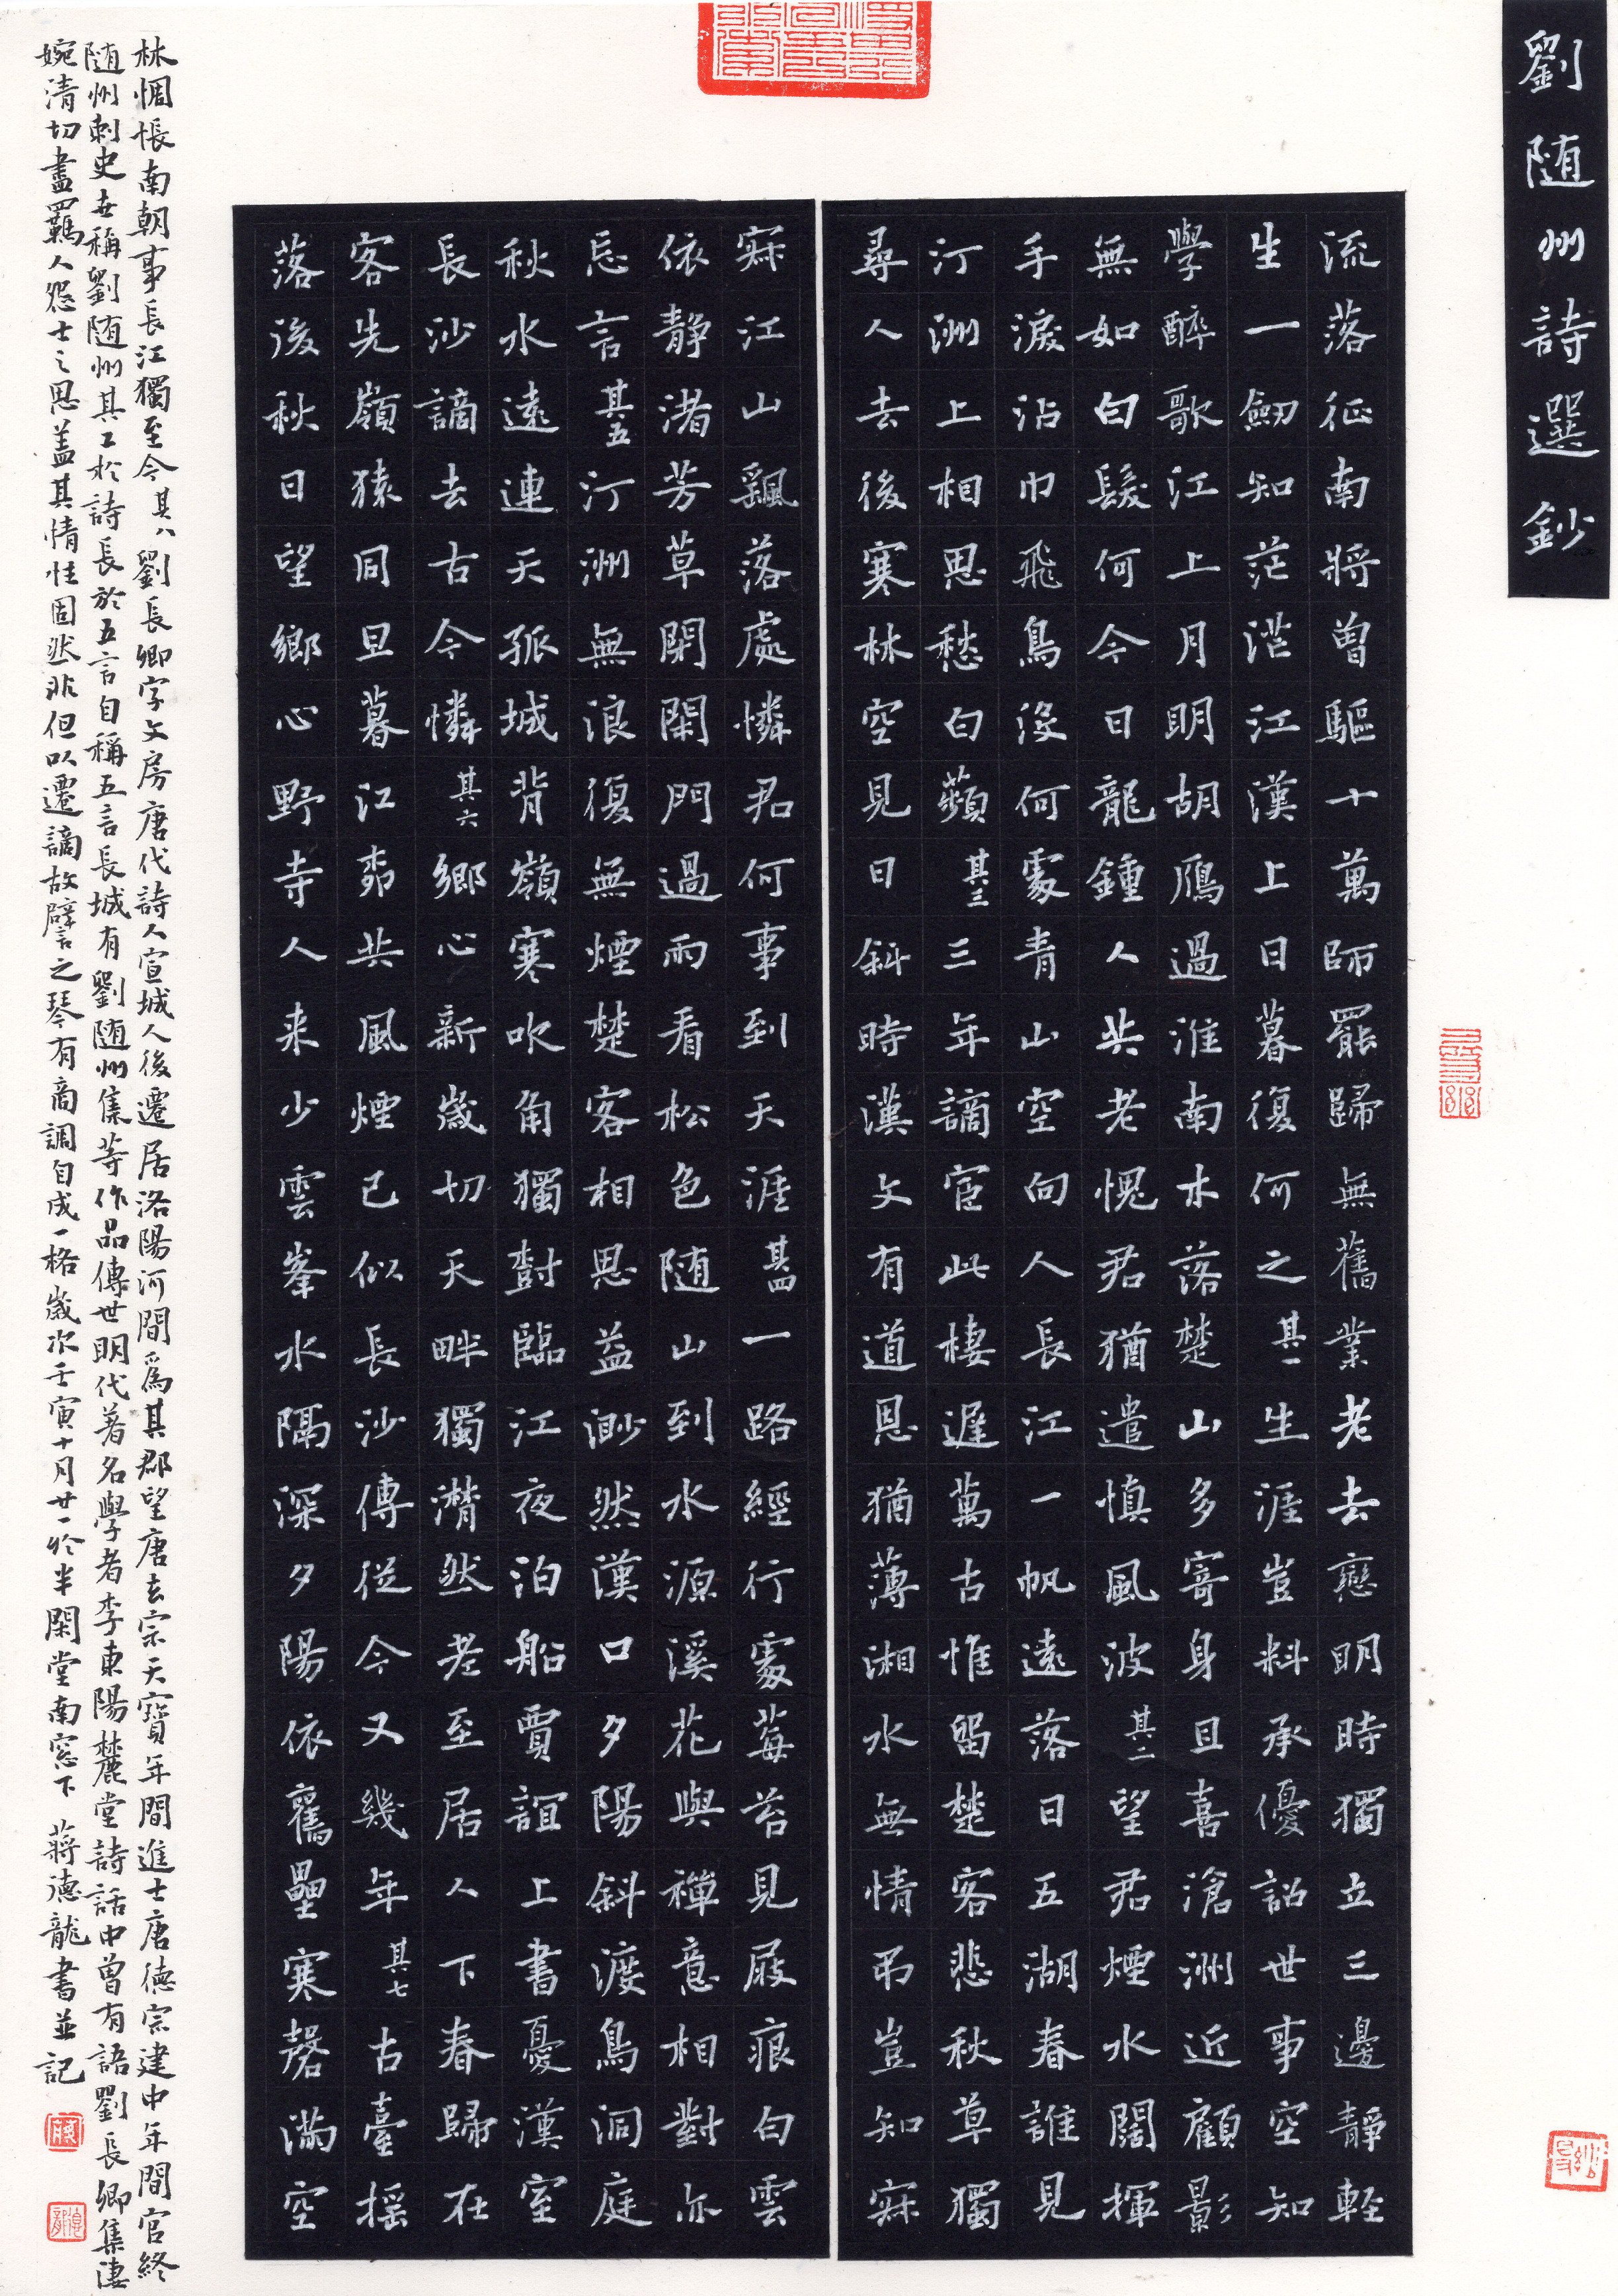 劉随州詩選鈔
流落征南將曾驅十萬師罷歸無舊業老去戀明時獨立三邊靜輕
生一劒知茫茫江漢上日暮復何之其一生涯豈料承優詔世事空知
學醉歌江上月明胡鴈過淮南木落楚山多寄身且喜滄洲近顧影
無如白髮何今日龍鍾人共老愧君猶遣慎風波其二望君煙水闊揮
手淚沾巾飛鳥沒何處青山空向人長江一帆遠落日五湖春誰見
汀洲上相思愁白蘋其三三年謫宦此棲遲萬古惟留楚客悲秋草獨
尋人去後寒林空見日斜時漢文有道恩猶薄湘水無情弔豈知寂
寂江山飄落處憐君何事到天涯其四一路經行處莓苔見屐痕白雲
依静渚芳草閉閑門過雨看松色随山到水源溪花與禪意相對亦
忘言其五汀洲無浪復無煙楚客相思益渺然漢口夕陽斜渡鳥洞庭
秋水遠連天孤城背嶺寒吹角獨對臨江夜泊船賈誼上書憂漢室
長沙謫去古今憐其六鄉心新歲切天畔獨潸然老至居人下春歸在
客先嶺猿同旦暮江柳共風煙已似長沙傅從今又幾年其七古臺摇
落後秋日望鄉心野寺人来少雲峯水隔深夕陽依舊壘寒磬滿空
林惆悵南朝事長江獨至今其八劉長卿字文房唐代詩人宣城人後遷居洛陽河間爲其郡望唐玄宗天寶年間進士唐德宗建中年間官終
随州刺史世稱劉随州其工於詩長於五言自稱五言長城有劉随州集等作品傳世明代著名學者李東陽麓堂詩話中曾有語劉長卿集淒
婉清切盡羈人怨士之思盖其情性固然非但以遷謫故譬之琴有商調自成一格歲次壬寅十月廿一於半閑堂南窓下蔣德龍書並記